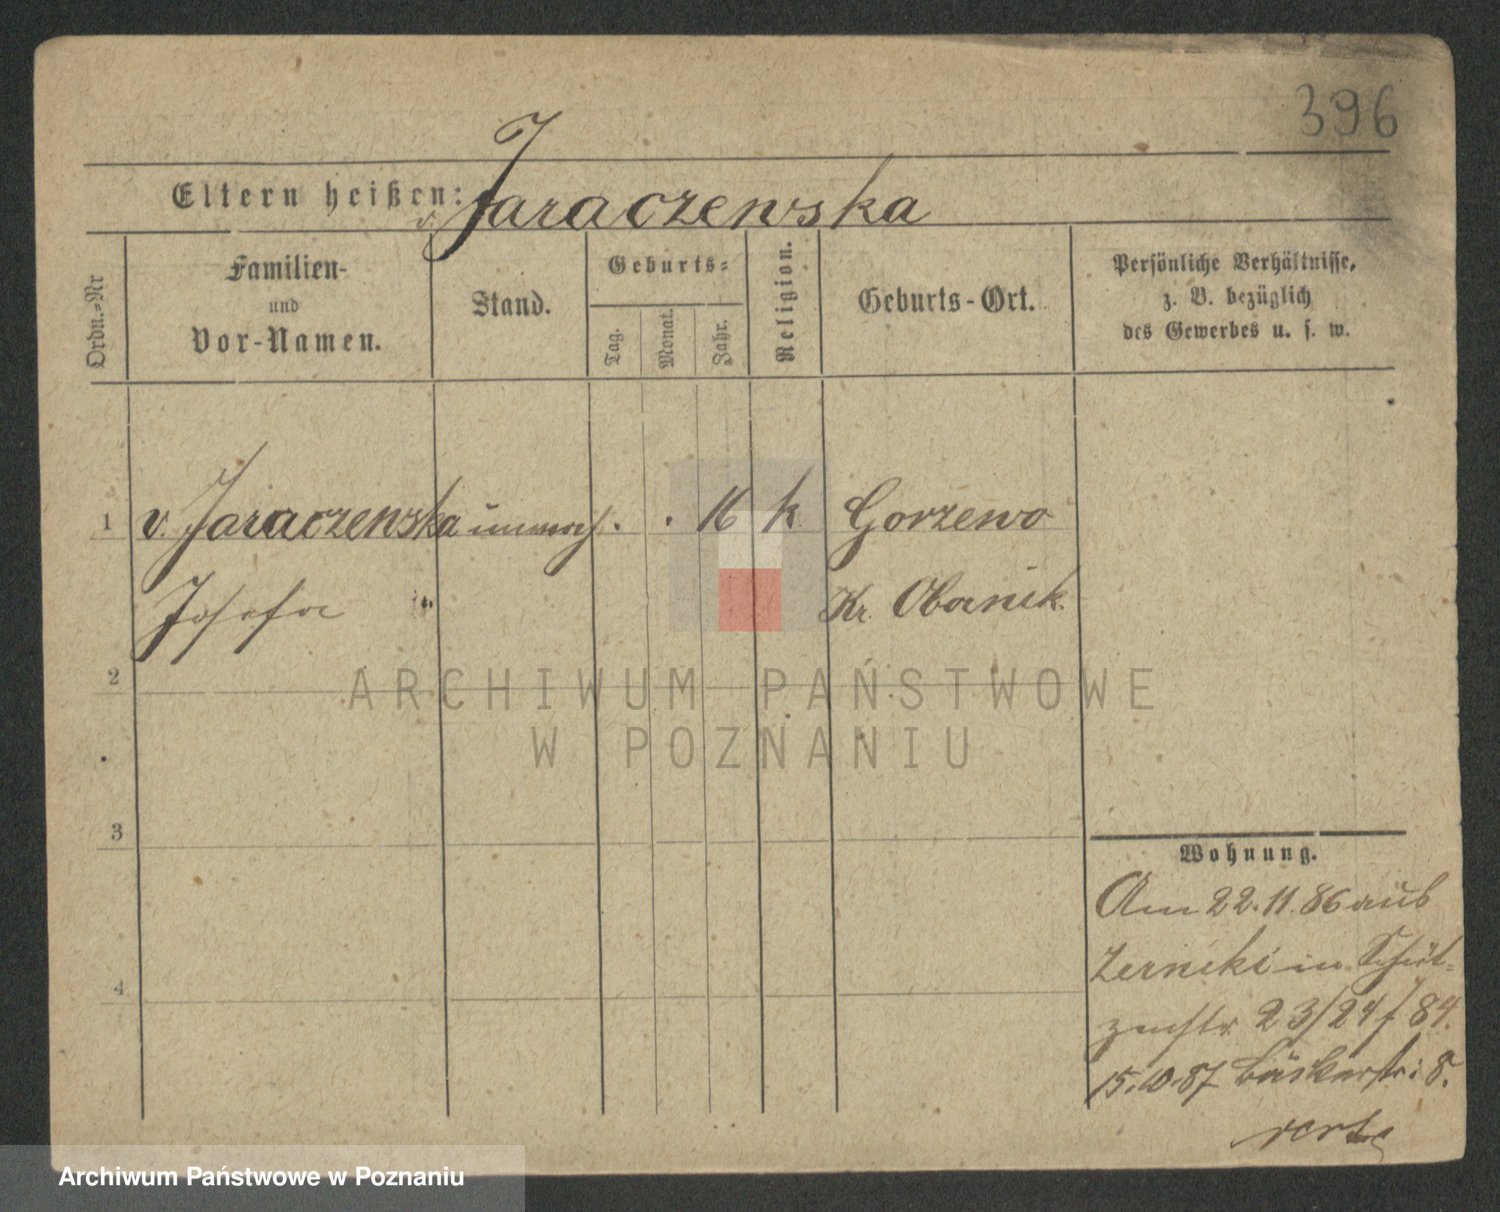 396
Eltern heißen: v. Jaraczewska
Ordn.-Nr
Familien-
und
Vor-Namen.
Stand.
Geburts-
Tag.
Monat.
Jahr.
Religion.
Geburts-Ort.
Persönliche Verhältnisse,
z. B. bezüglich
des Gewerbes u. s. w.
1 v. Jaraczewska unverh. . . 16 k Gorzewo
Josefa Kr. Obornik.
2
3
4
Wohnung.
Am 22.11.86 aus
Zernicki in Schüt-
zenstr. 23/24 f 84.
15.10.87 Bäckerstr: 8.
verte
ARCHIWUM PAŃSTWOWE
W POZNANIU
Archiwum Państwowe w Poznaniu